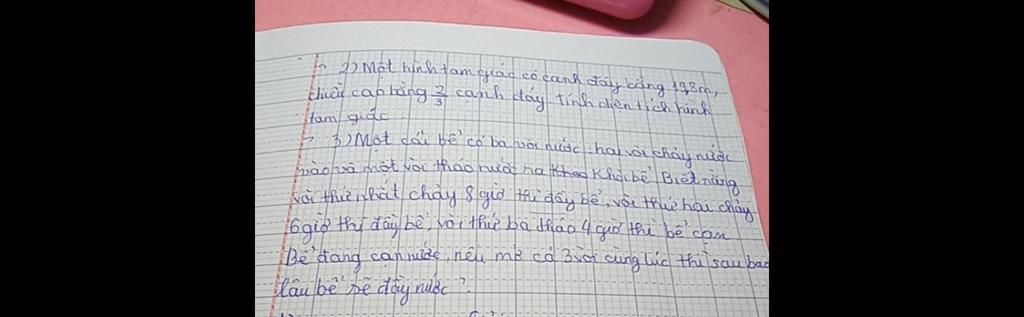 2) Một hình tam giác có cạnh đáy bằng 19,8m,
chiều cao bằng 2/3 cạnh đáy. Tính diện tích hình
tam giác
3) Một cái bể có ba vòi nước: hai vòi chảy nước
vào và một vòi tháo nước ra khỏi bể. Biết rằng
vòi thứ nhất chảy 8 giờ thì đầy bể, vòi thứ hai chảy
6 giờ thì đầy bể, vòi thứ ba tháo 4 giờ thì bể cạn
Bể đang cạn nước, nếu mở cả 3 vòi cùng lúc thì sau bao
lâu bể sẽ đầy nước?